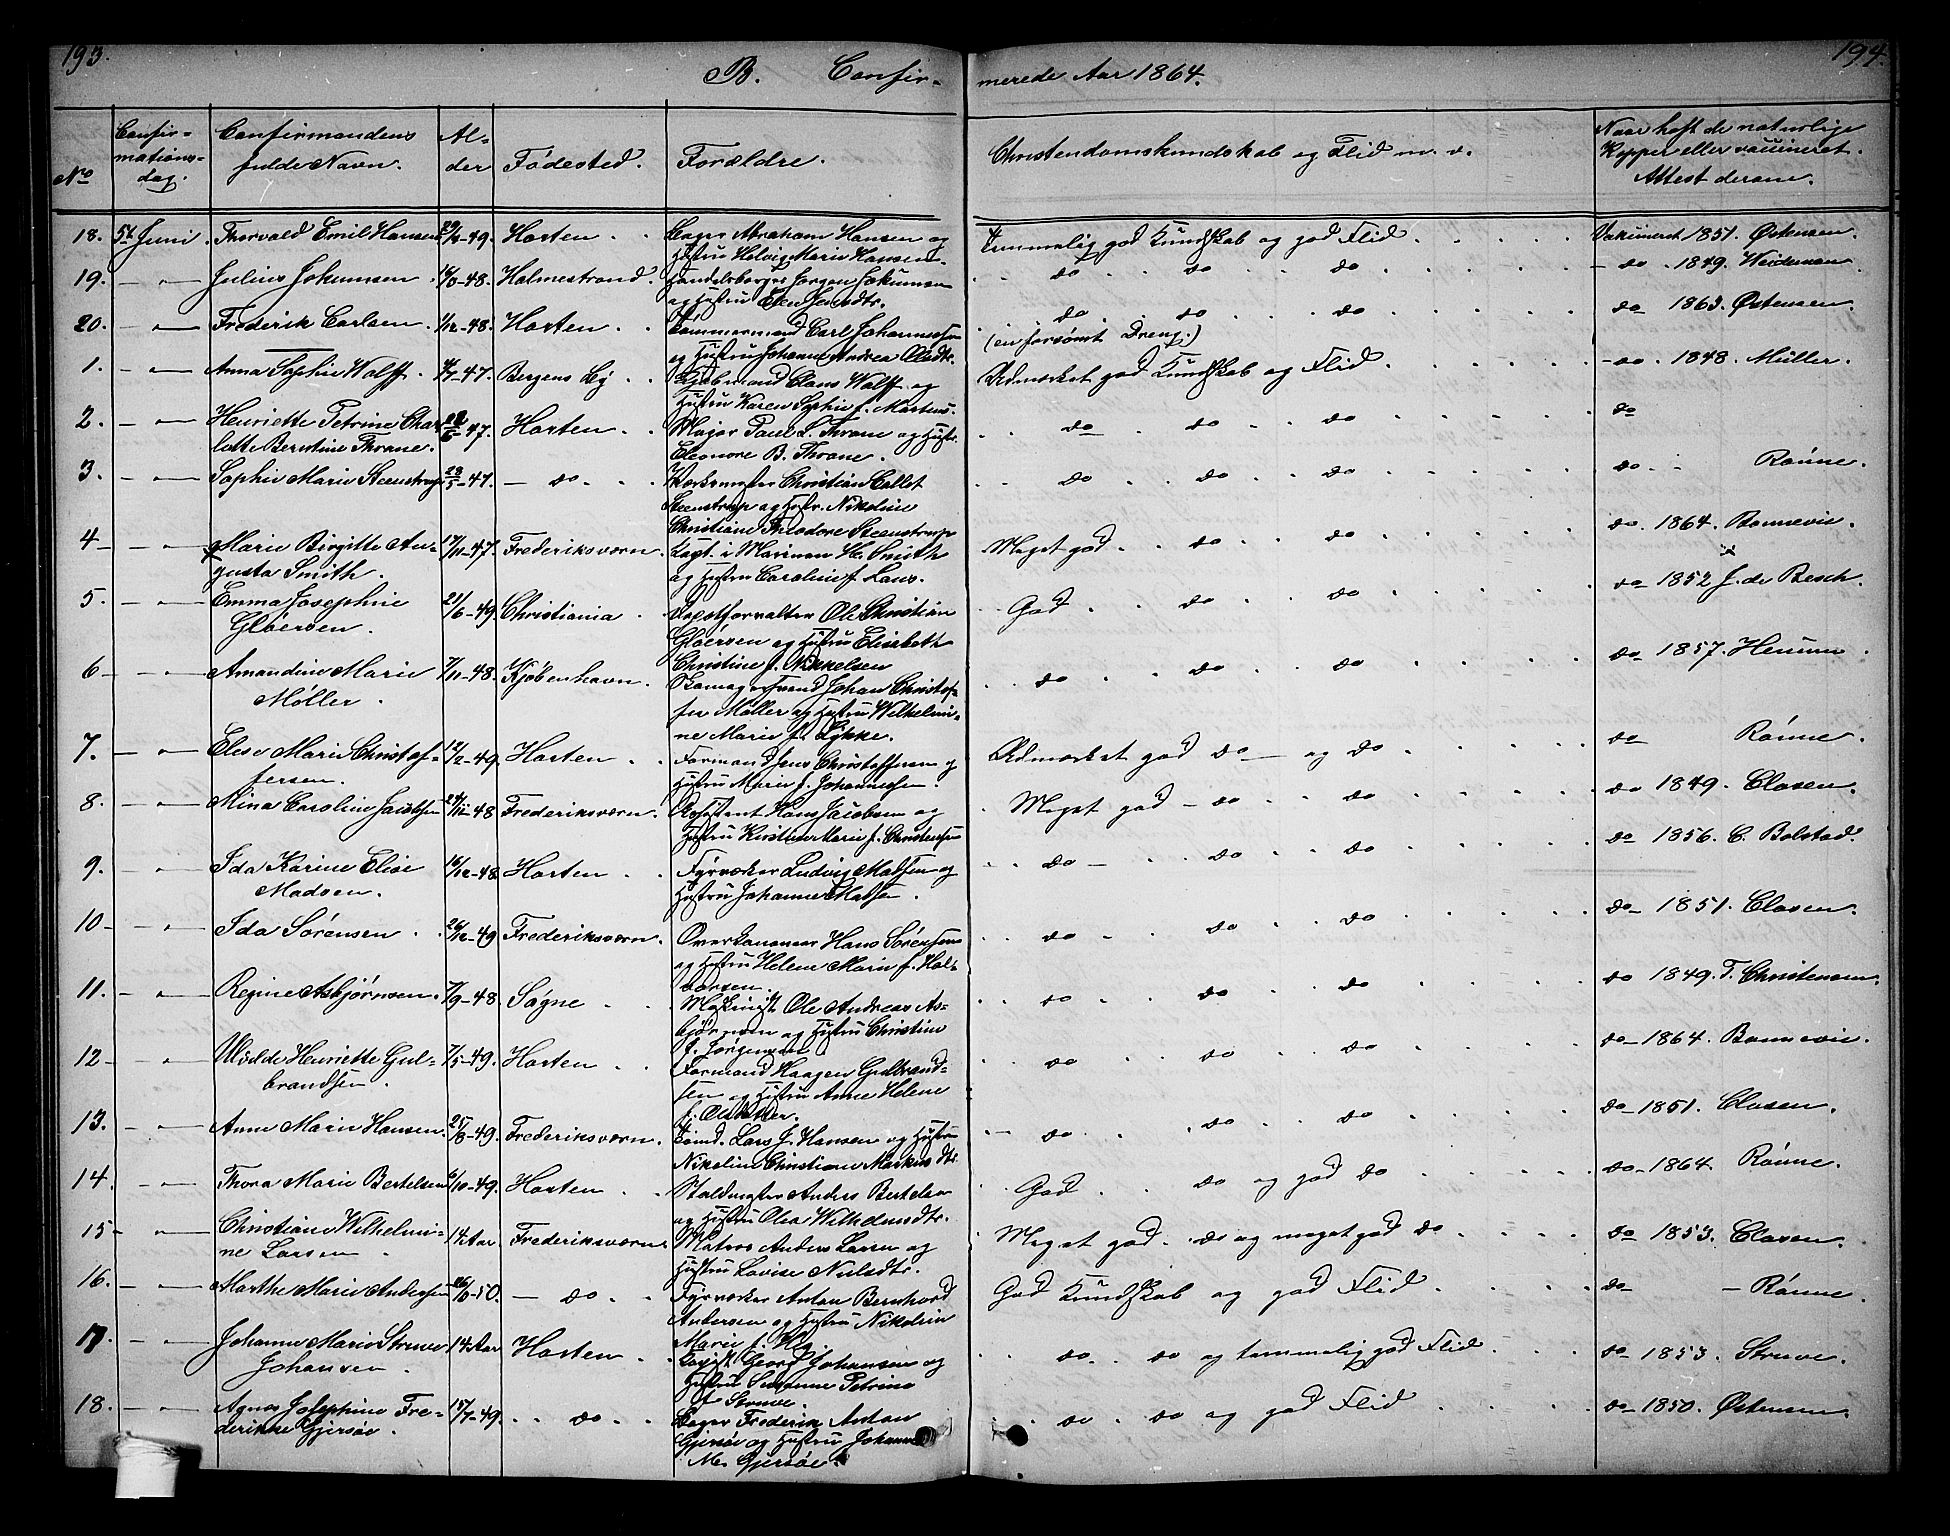 193.
B. Confir-
merede Aar 1864.
194.
No
Confir-
mations-
dag.
Confirmandens
fulde Navn.
Al-
der
Fødested.
Forældre.
Christendomskundskab og Flid m. v.
Naar haft de naturlige
Kopper eller vaccineret.
Attest derom.
18. 5te Juni. Thorvald Emil Hansen 49. Horten Bager Abraham Hansen og
Hustru Helvig Marie Hansen.
Temmelig god Kundskab og god Flid Vakcineret 1851. Østensen.
19. — " — Julius Jokumsen -48. Holmestrand. Handelsborger Jørgen Jokumsen
og Hustru Elen Jensdtr.
do do do do 1849. Weideman
20. — " — Frederik Carlsen 1/12-48. Horten Tømmermand Carl Johannessen
og Hustru Johanne Andrea Olsdtr.
do do do do 1863. Østensen.
(en forsømt Dreng.)
1. — " — Anna Sophie Wolff. -47. Bergens By Kjøbmand Claus Wolff og
Hustru Karen Sophie f. Martens.
Udmærket god Kundskab og Flid do 1848. Müller.
2. — " — Henriette Petrine Char-
lotte Berntine Thrane. -47. Horten Major Paul L. Thrane og Hustr.
Eleonore B. Thrane.
do do do do
3. — " — Sophie Marie Steenstrup 23/5-47. — do Værksmester Christian Collet
Steenstrup og Hustr. Nikoline
Christiane Theodore Steenstrup
do do do do Rønne.
4 — " — Marie Birgitte Au-
gusta Smith. 17/11-47. Frederiksværn. Kapt. i Marinen H. Smith
og Hustru Caroline f. Laus.
Meget god do do do 1864. Bonnevie.
5. — " — Emma Josephine
Gløersen. 21/6-49. Christiania Toldforvalter Ole Christian
Gløersen og Hustru Elisabeth
Christine f. Mikkelsen
God do do do 1852 J. de Besch.
6 — " — Amandine Marie
Møller. 7/11-48. Kjøbenhavn. Skomagersvend Johan Christof-
fer Møller og Hustru Wilhelmi-
ne Marie f. Lykke.
do do do do 1857. Heuum
7. — " — Elise Marie Christof-
fersen. 12/2-49. Horten Formand Jens Christoffersen og
Hustru Marie f. Johannessen.
Udmærket god do — og do do Rønne.
8. — " — Mina Caroline Jacobsen 24/11-48 Frederiksværn. Assistent Hans Jacobsen og
Hustru Kirstine Marie f. Christensen
Meget god — do do do 1849. Clasen.
9. — " — Ida Karine Elise
Madsen. 16/12-48 Horten Fyrværker Ludvig Madsen og
Hustru Johanne Madsen.
do — do do do 1856. C. Bolstad.
10 — " — Ida Sørensen 26/12-49 Frederiksværn. Overkanoneer Hans Sørensen
og Hustru Helene Marie f. Hal-
vorsen.
do do do do 1851. Clasen.
11. — " — Regine Asbjørnsen. 7/9-48. Søgne Maskinist Ole Andreas As-
bjørnsen og Hustru Christine
f. Jørgensen
do do do do 1849. T. Christensen.
12 — " — Hulde Henriette Gul-
brandsen 7/5-49. Horten Formand Haagen Gulbrand-
sen og Hustru Anne Helene
f. Olsdatter.
do do do do 1864. Bonnevie.
13. — " — Anne Marie Hansen. 25/8-49. Frederiksværn. Tømd. Lars J. Hansen og Hustru
Nikoline Christiane Markusdtr.
— do do do do 1851. Clasen.
14. — " — Thora Marie Bertelsen 6/10-49. Horten Staldmester Anders Bertelsen
og Hustru Olea Wilhelmsdtr.
God do og god do do 1864. Rønne.
15 — " — Christiane Wilhelmi-
ne Larsen 14 Aar. Frederiksværn. Matros Anders Larsen og
Hustru Lovise Nielsdtr.
Meget god do og meget god do do 1853. Clasen.
16. — " — Marthe Marie Andersen -50. — do Fyrværker Anton Bernhard
Andersen og Hustru Nikoline
Marie f.
God Kundskab og god Flid do — Rønne.
17. — " — Johanne Marie Struve
Johansen 14 Aar Horten Georg Johansen og
Hustru Susanne Petrine
f. Struve.
do do og temmelig god Flid do 1853. Struve.
18. — " — Agnes Josephine Fre-
derikke Gjersøe. 15/7-49. do Bager Frederik Anton
Gjersøe og Hustru Johanne
M. Gjersøe.
do do og god Flid do 1850. Østensen.